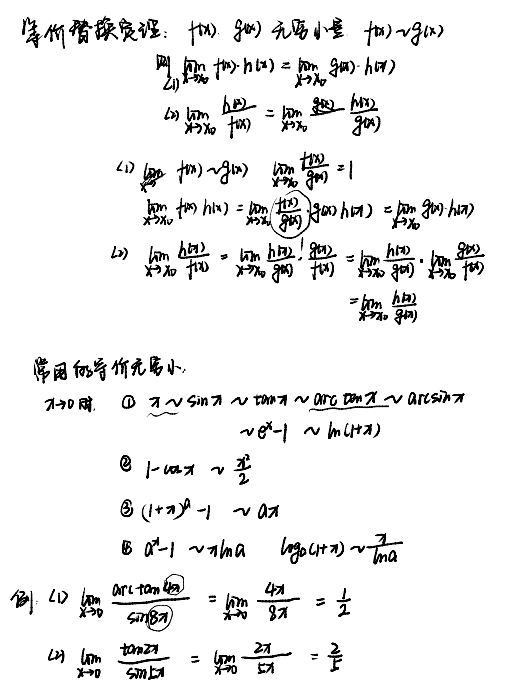 等价替换定理: f(x) g(x) 无穷小量 f(x)~g(x)
则 (1) lim x→x₀ f(x)·h(x) = lim x→x₀ g(x)·h(x)
(2) lim x→x₀ h(x)/f(x) = lim x→x₀ h(x)/g(x)
(1) f(x)~g(x) lim x→x₀ f(x)/g(x) = 1
lim x→x₀ f(x) h(x) = lim x→x₀ f(x)/g(x) · g(x) h(x) = lim x→x₀ g(x)·h(x)
(2) lim x→x₀ h(x)/f(x) = lim x→x₀ h(x)/g(x) · g(x)/f(x) = lim x→x₀ h(x)/g(x) · lim x→x₀ g(x)/f(x)
= lim x→x₀ h(x)/g(x)
常用的等价无穷小.
x→0时. ① x ~ sinx ~ tanx ~ arctanx ~ arcsinx
~ eˣ-1 ~ ln(1+x)
② 1-cosx ~ x²/2
③ (1+x)ᵃ-1 ~ ax
④ aˣ-1 ~ xlna logₐ(1+x) ~ x/lna
例. (1) lim x→0 arctan4x/sin8x = lim x→0 4x/8x = 1/2
(2) lim x→0 tan2x/sin5x = lim x→0 2x/5x = 2/5